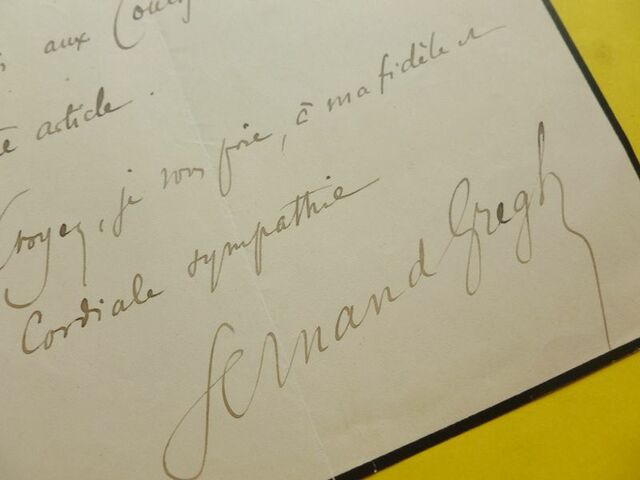 aux
article.
Croyez, je vous prie, à ma fidèle et
Cordiale sympathie
Fernand Gregh